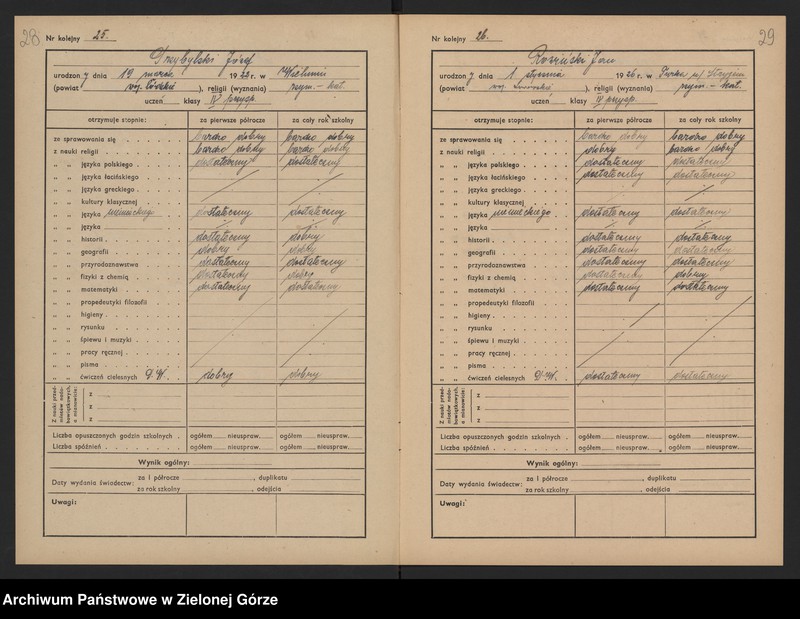 28
Nr kolejny 25.
Przybylski Józef
urodzony dnia 19 marca 1922 r. w Wieluniu
(powiat woj. Łódzkie), religii (wyznania) rzym.-kat.
uczeń klasy IV przysp.
otrzymuje stopnie: za pierwsze półrocze za cały rok szkolny
ze sprawowania się bardzo dobry bardzo dobry
z nauki religii bardzo dobry bardzo dobry
„ „ języka polskiego dostateczny dostateczny
„ „ języka łacińskiego
„ „ języka greckiego
„ „ kultury klasycznej
„ „ języka niemieckiego dostateczny dostateczny
„ „ języka
„ „ historii dostateczny dobry
„ „ geografii dobry dobry
„ „ przyrodoznawstwa dostateczny dostateczny
„ „ fizyki z chemią dostateczny dobry
„ „ matematyki dostateczny dostateczny
„ „ propedeutyki filozofii
„ „ higieny
„ „ rysunku
„ „ śpiewu i muzyki
„ „ pracy ręcznej
„ „ pisma
„ „ ćwiczeń cielesnych dobry dobry
Z nauki przedmiotów nadobowiązkowych, a mianowicie:
z
z
z
Liczba opuszczonych godzin szkolnych ogółem nieuspraw. ogółem nieuspraw.
Liczba spóźnień ogółem nieuspraw. ogółem nieuspraw.
Wynik ogólny:
Daty wydania świadectw: za I półrocze, duplikatu
za rok szkolny, odejścia
Uwagi:
29
Nr kolejny 26.
Jan
urodzony dnia 1 stycznia 1926 r. w Turka n/ Stryjem
(powiat woj. Lwowskie), religii (wyznania) rzym.-kat.
uczeń klasy IV przysp.
otrzymuje stopnie: za pierwsze półrocze za cały rok szkolny
ze sprawowania się bardzo dobry bardzo dobry
z nauki religii dobry bardzo dobry
„ „ języka polskiego dostateczny dostateczny
„ „ języka łacińskiego dostateczny dostateczny
„ „ języka greckiego
„ „ kultury klasycznej
„ „ języka niemieckiego dostateczny dostateczny
„ „ języka
„ „ historii dostateczny dostateczny
„ „ geografii dostateczny dostateczny
„ „ przyrodoznawstwa dostateczny dostateczny
„ „ fizyki z chemią dostateczny dobry
„ „ matematyki dostateczny dostateczny
„ „ propedeutyki filozofii
„ „ higieny
„ „ rysunku
„ „ śpiewu i muzyki
„ „ pracy ręcznej
„ „ pisma
„ „ ćwiczeń cielesnych dostateczny dostateczny
Z nauki przedmiotów nadobowiązkowych, a mianowicie:
z
z
z
Liczba opuszczonych godzin szkolnych ogółem nieuspraw. ogółem nieuspraw.
Liczba spóźnień ogółem nieuspraw. ogółem nieuspraw.
Wynik ogólny:
Daty wydania świadectw: za I półrocze, duplikatu
za rok szkolny, odejścia
Uwagi:
Archiwum Państwowe w Zielonej Górze